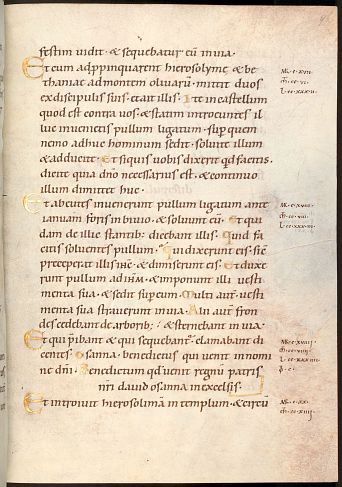 festim uidit · & sequebatur eū in uia ·
Et cum adpropinquarent hierosolyme & be
thaniae ad montem oliuarū · mittit duos
ex discipulis suis · et ait illis · Ite in castellum
quod est contra uos · & statim introeuntes il
luc inuenietis pullum ligatum · sup quem
nemo adhuc hominum sedit · soluite illum
& adducite · Et siquis uobis dixerit qd facitis ·
dicite quia dnō necessarius est · & continuo
illum dimittet huc ·
Et abeuntes inuenerunt pullum ligatum ante
ianuam foris in biuio · & soluunt eū · Et qui
dam de illic stantib; dicebant illis · Quid fa
citis soluentes pullum · Qui dixerunt eis · sic
preceperat illis ihc · & dimiserunt eis · Et duxe
runt pullum ad ihm · & imponunt illi uesti
menta sua · & sedit sup eum · Multi aut · uesti
menta sua strauerunt in uia · Alii aut fron
des cedebant de arborib; · & sternebant in uia ·
Et qui pibant & qui sequebant · clamabant di
centes · Osanna · benedictus qui uenit in nomi
ne dnī · Benedictum qd uenit regnū patris
nrī dauid osanna in excelsis ·
Et introiuit hierosolimā in templum · & circū